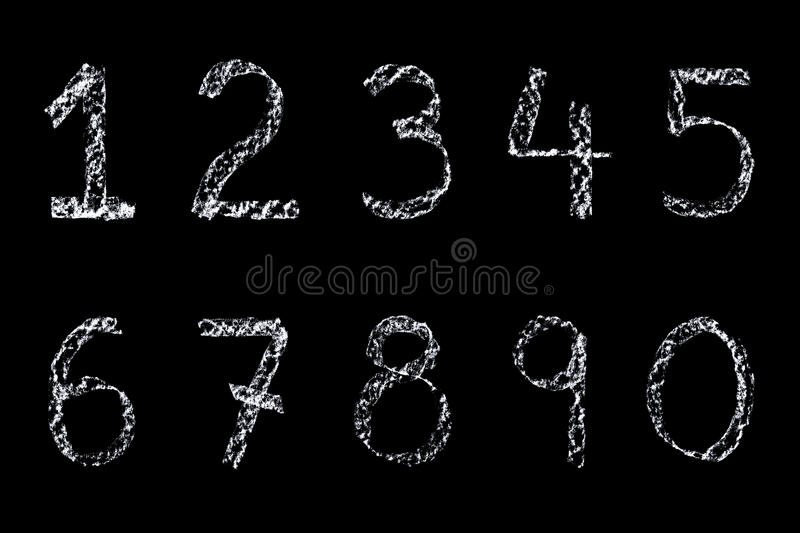 1 2 3 4 5
dreamstime.
6 7 8 9 0